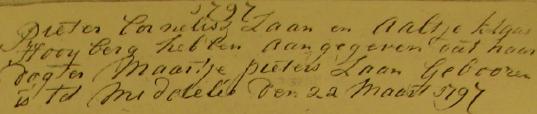 1797
Pieter Cornelisz Laan en Aaltje
Hooyberg hebben aangegeven dat haar
dogter Maartje Pieters Laan Gebooren
is te Middelie Den 22 Maart 1797